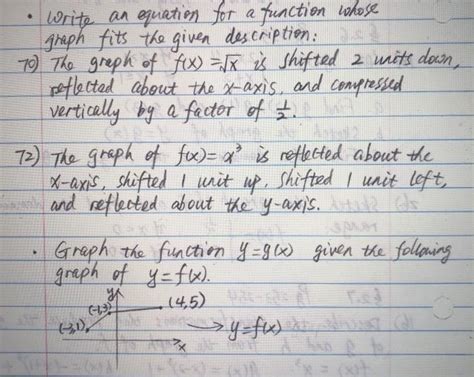 • Write an equation for a function whose
graph fits the given description:
70) The graph of f(x) = √x is shifted 2 units down,
reflected about the x-axis, and compressed
vertically by a factor of 1/2.
72) The graph of f(x) = x³ is reflected about the
x-axis, shifted 1 unit up, shifted 1 unit left,
and reflected about the y-axis.
• Graph the function y=g(x) given the following
graph of y=f(x).
y
(-1,3)
(4,5)
(-3,1)
→ y=f(x)
x